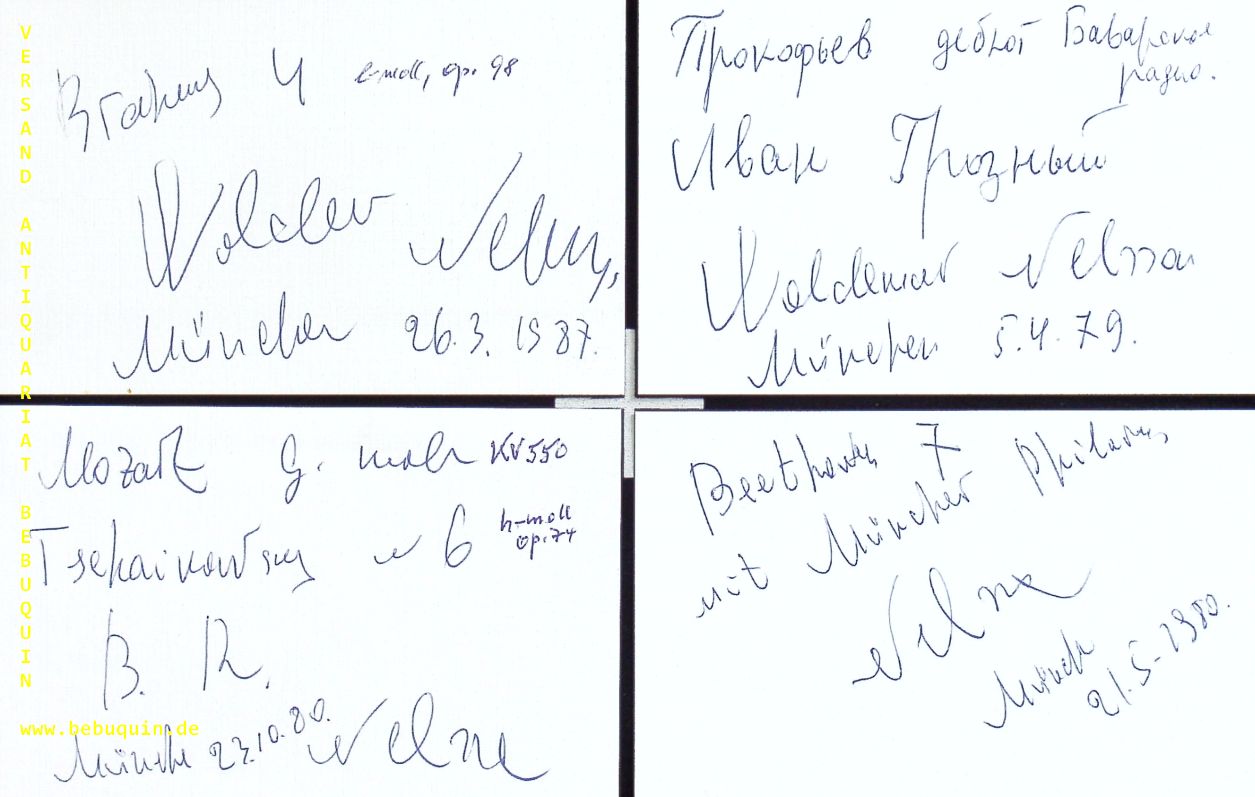 Brahms 4 e-moll, op. 98
Waldemar Nelsson,
München 26.3.1987.
Прокофьев дебют Баварское
радио.
Иван Грозный
Waldemar Nelsson
München 5.4.79.
Mozart G. moll KV550
Tschaikowsky N 6 h-moll
op. 74
B. R.
München 23.10.80. Nelsson
Beethoven 7
mit Münchner Philharm
Nelsson
München
21.5-1980.
VERSAND ANTIQUARIAT BEBUQUIN
www.bebuquin.de